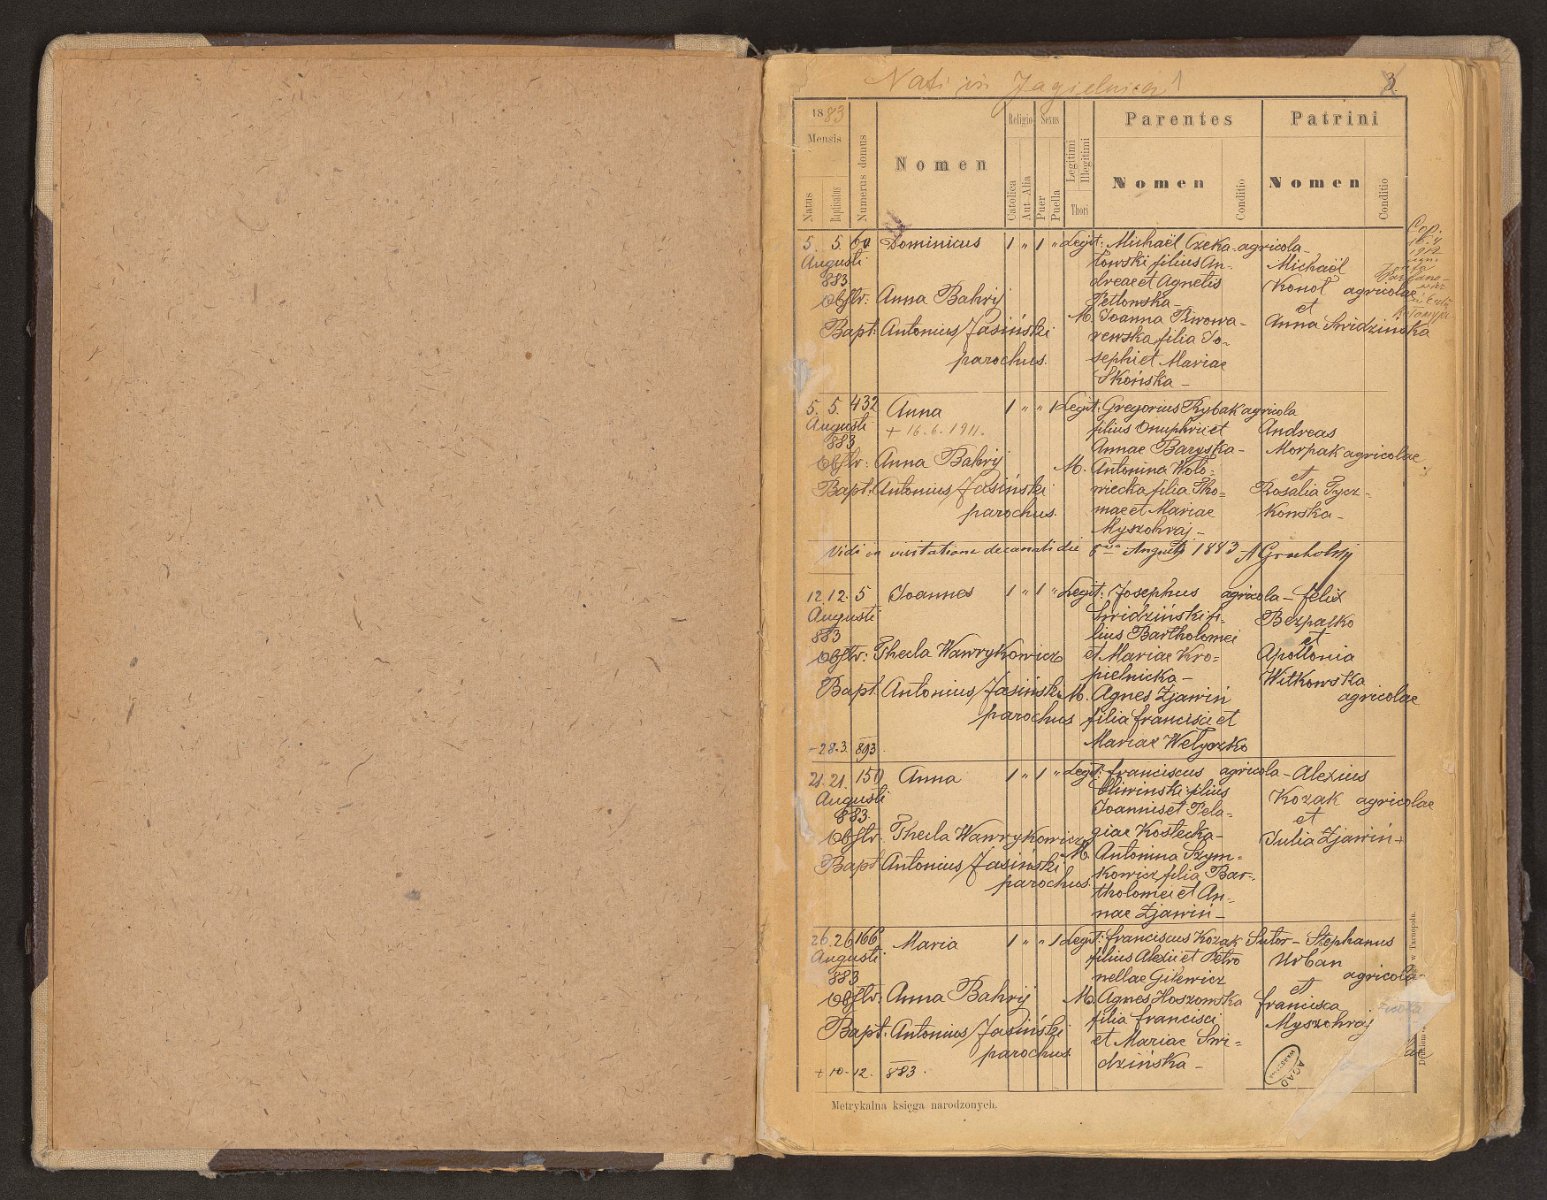 Nati in Jagielnica
3.
1883
Mensis
Natus
Baptisatus
Numerus domus
Nomen
Religio
Catolica
Aut Alia
Sexus
Puer
Puella
Legitimi
Illegitimi
Thori
Parentes
Nomen
Conditio
Patrini
Nomen
Conditio
5. 5. 60 Dominicus 1 " 1 " Legit: Michaël Czeka- agricola -
Augusti towski filius An- Michaël
883 dreae et Agnetis Konot agricolae
Obstr: Anna Bahrij Petlowska - et
M. Joanna Piwowa- Anna Swidzińska
Bapt: Antonius Jasiński rewska filia Jo-
parochus. sephi et Mariae
Skońska -
5. 5. 432 Anna 1 " " 1 Legit: Gregorius Rybak agricola
Augusti + 16.6.1911. filius Onuphrii et Andreas
883 Annae Baryska - Morpak agricolae
Obstr: Anna Bahrij M. Antonina Woło- et
Bapt: Antonius Jasiński wiecka filia Tho- Rosalia Tycz-
parochus. mae et Mariae kowska -
Myszohraj -
Vidi in visitatione decanali die Augusti 1883
12. 12. 5 Joannes 1 " 1 " Legit: Josephus agricola - Felix
Augusti Swidziński fi- Bezpalko
883 lius Bartholomei et
Obstr: Thecla Wawrykowicz et Mariae Kro- Apollonia
pielnicka - Witkowska
Bapt. Antonius Jasiński M. Agnes Zjawiń agricolae
parochus filia Francisci et
- 28.3. 893. Mariae Welyczko
21. 21. 150 Anna 1 " 1 " Legit: Franciscus agricola - Alexius
Augusti Oliwinski filius Kozak agricolae
883. Joannis et Pela- et
Obstr. Thecla Wawrykowicz giae Kostecka - Julia Zjawiń
Bapt Antonius Jasiński M. Antonina Szym-
parochus. kowicz filia Bar-
tholomei et An-
nae Zjawiń -
26. 26 166 Maria 1 " " 1 Legit: Franciscus Kozak Sutor - Stephanus
Augusti filius Alexii et Petro Urban
883 nellae Gilewicz agricola
Obstr: Anna Bahrij M. Agnes Hoszowska et Francisca
Bapt: Antonius Jasiński filia Francisci Myszohraj
parochus et Mariae Swi-
+ 10. 12. 883. dzińska -
AGAD
Metrykalna księga narodzonych.